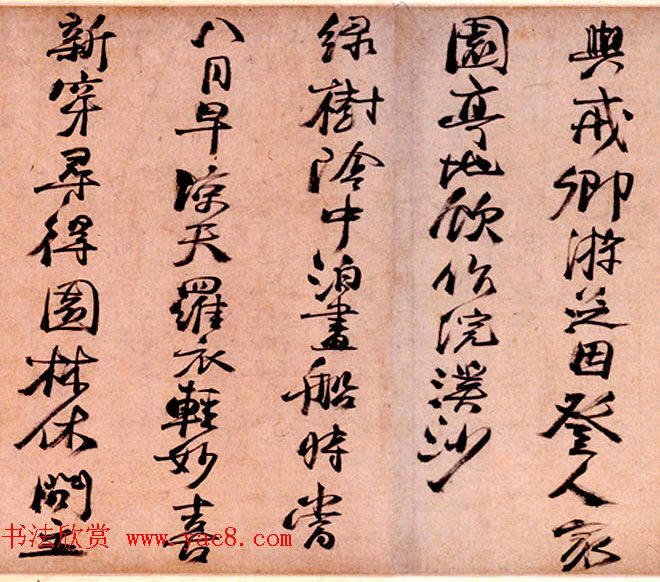 與戒卿游芝因登人家
園亭地欣作浣溪沙
绿樹陰中泊畫船時當
八月早凉天羅衣輕妙喜
新穿尋得園林休問主
书法欣赏 www.yac8.com